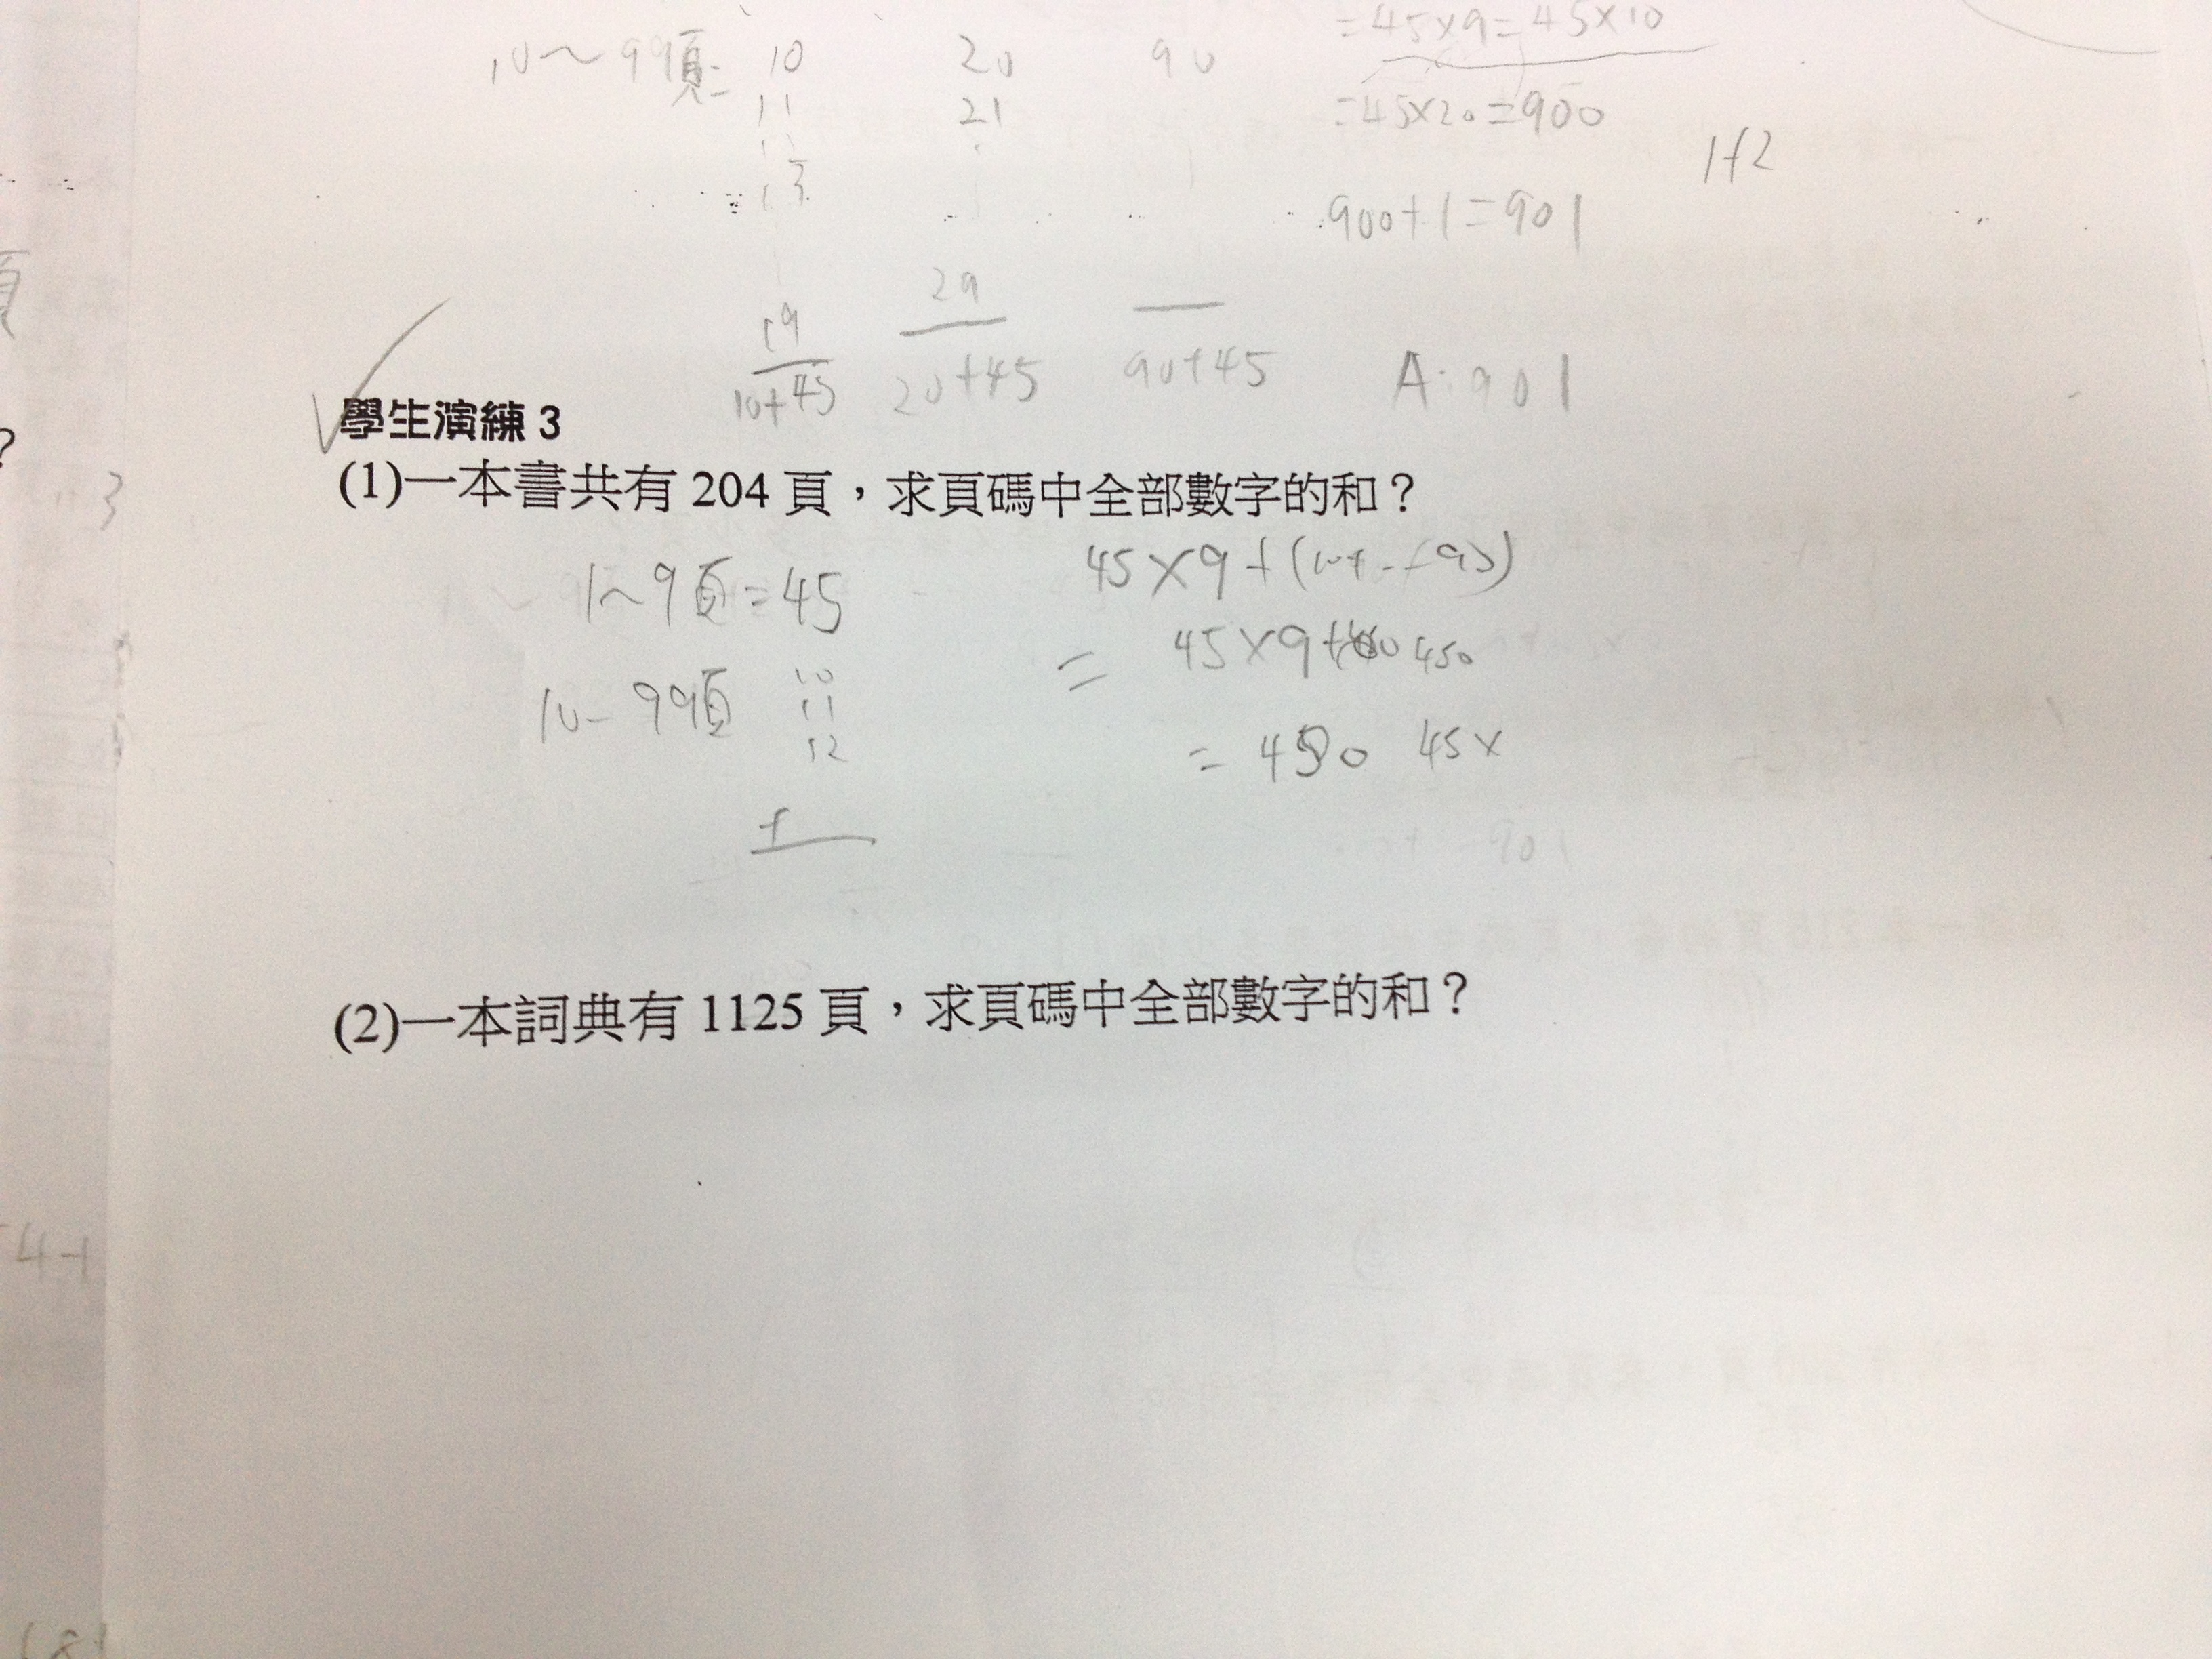 =45×9=45×10
10～99頁= 10 20 90
=45×20=900
11 21
1+2
13
900+1=901
29
19
10+45 20+45 90+45
A:901
學生演練 3
(1)一本書共有 204 頁，求頁碼中全部數字的和？
1~9頁=45
45×9+(10+--+90)
= 45×9+ 450
10-99頁 10
11
12
= 450 45×
+
(2)一本詞典有 1125 頁，求頁碼中全部數字的和？
頁
?
3
4+